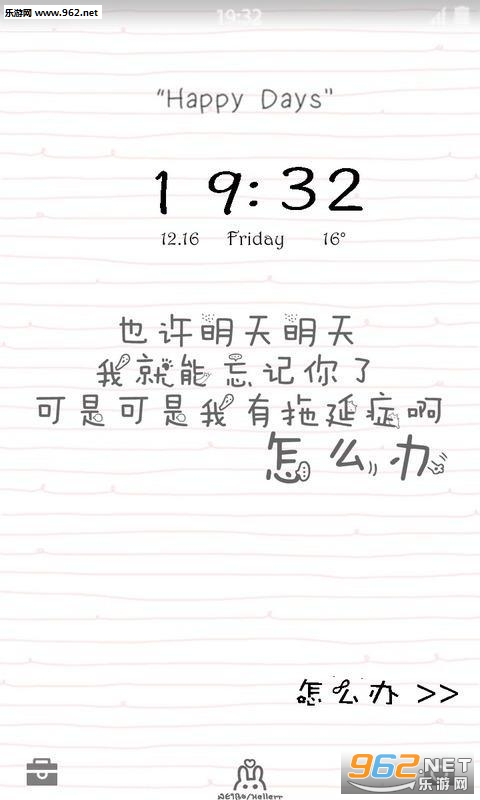 乐游网 www.962.net
19:32
"Happy Days"
19:32
12.16 Friday 16°
也许明天明天
我就能忘记你了
可是可是我有拖延症啊
怎么办
怎么办 >>
962.NET
乐游网